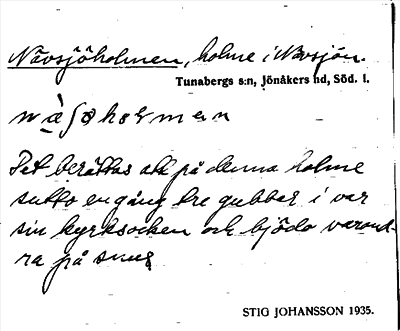 Nävsjöholmen, holme i Nävsjön.
Tunabergs s:n, Jönåkers hd, Söd. l.
nä̀ʃøholmen
Det berättas att på denna holme
sutto en gång tre gubbar i var
sin kyrksocken och bjödo varand-
ra på snus
STIG JOHANSSON 1935.